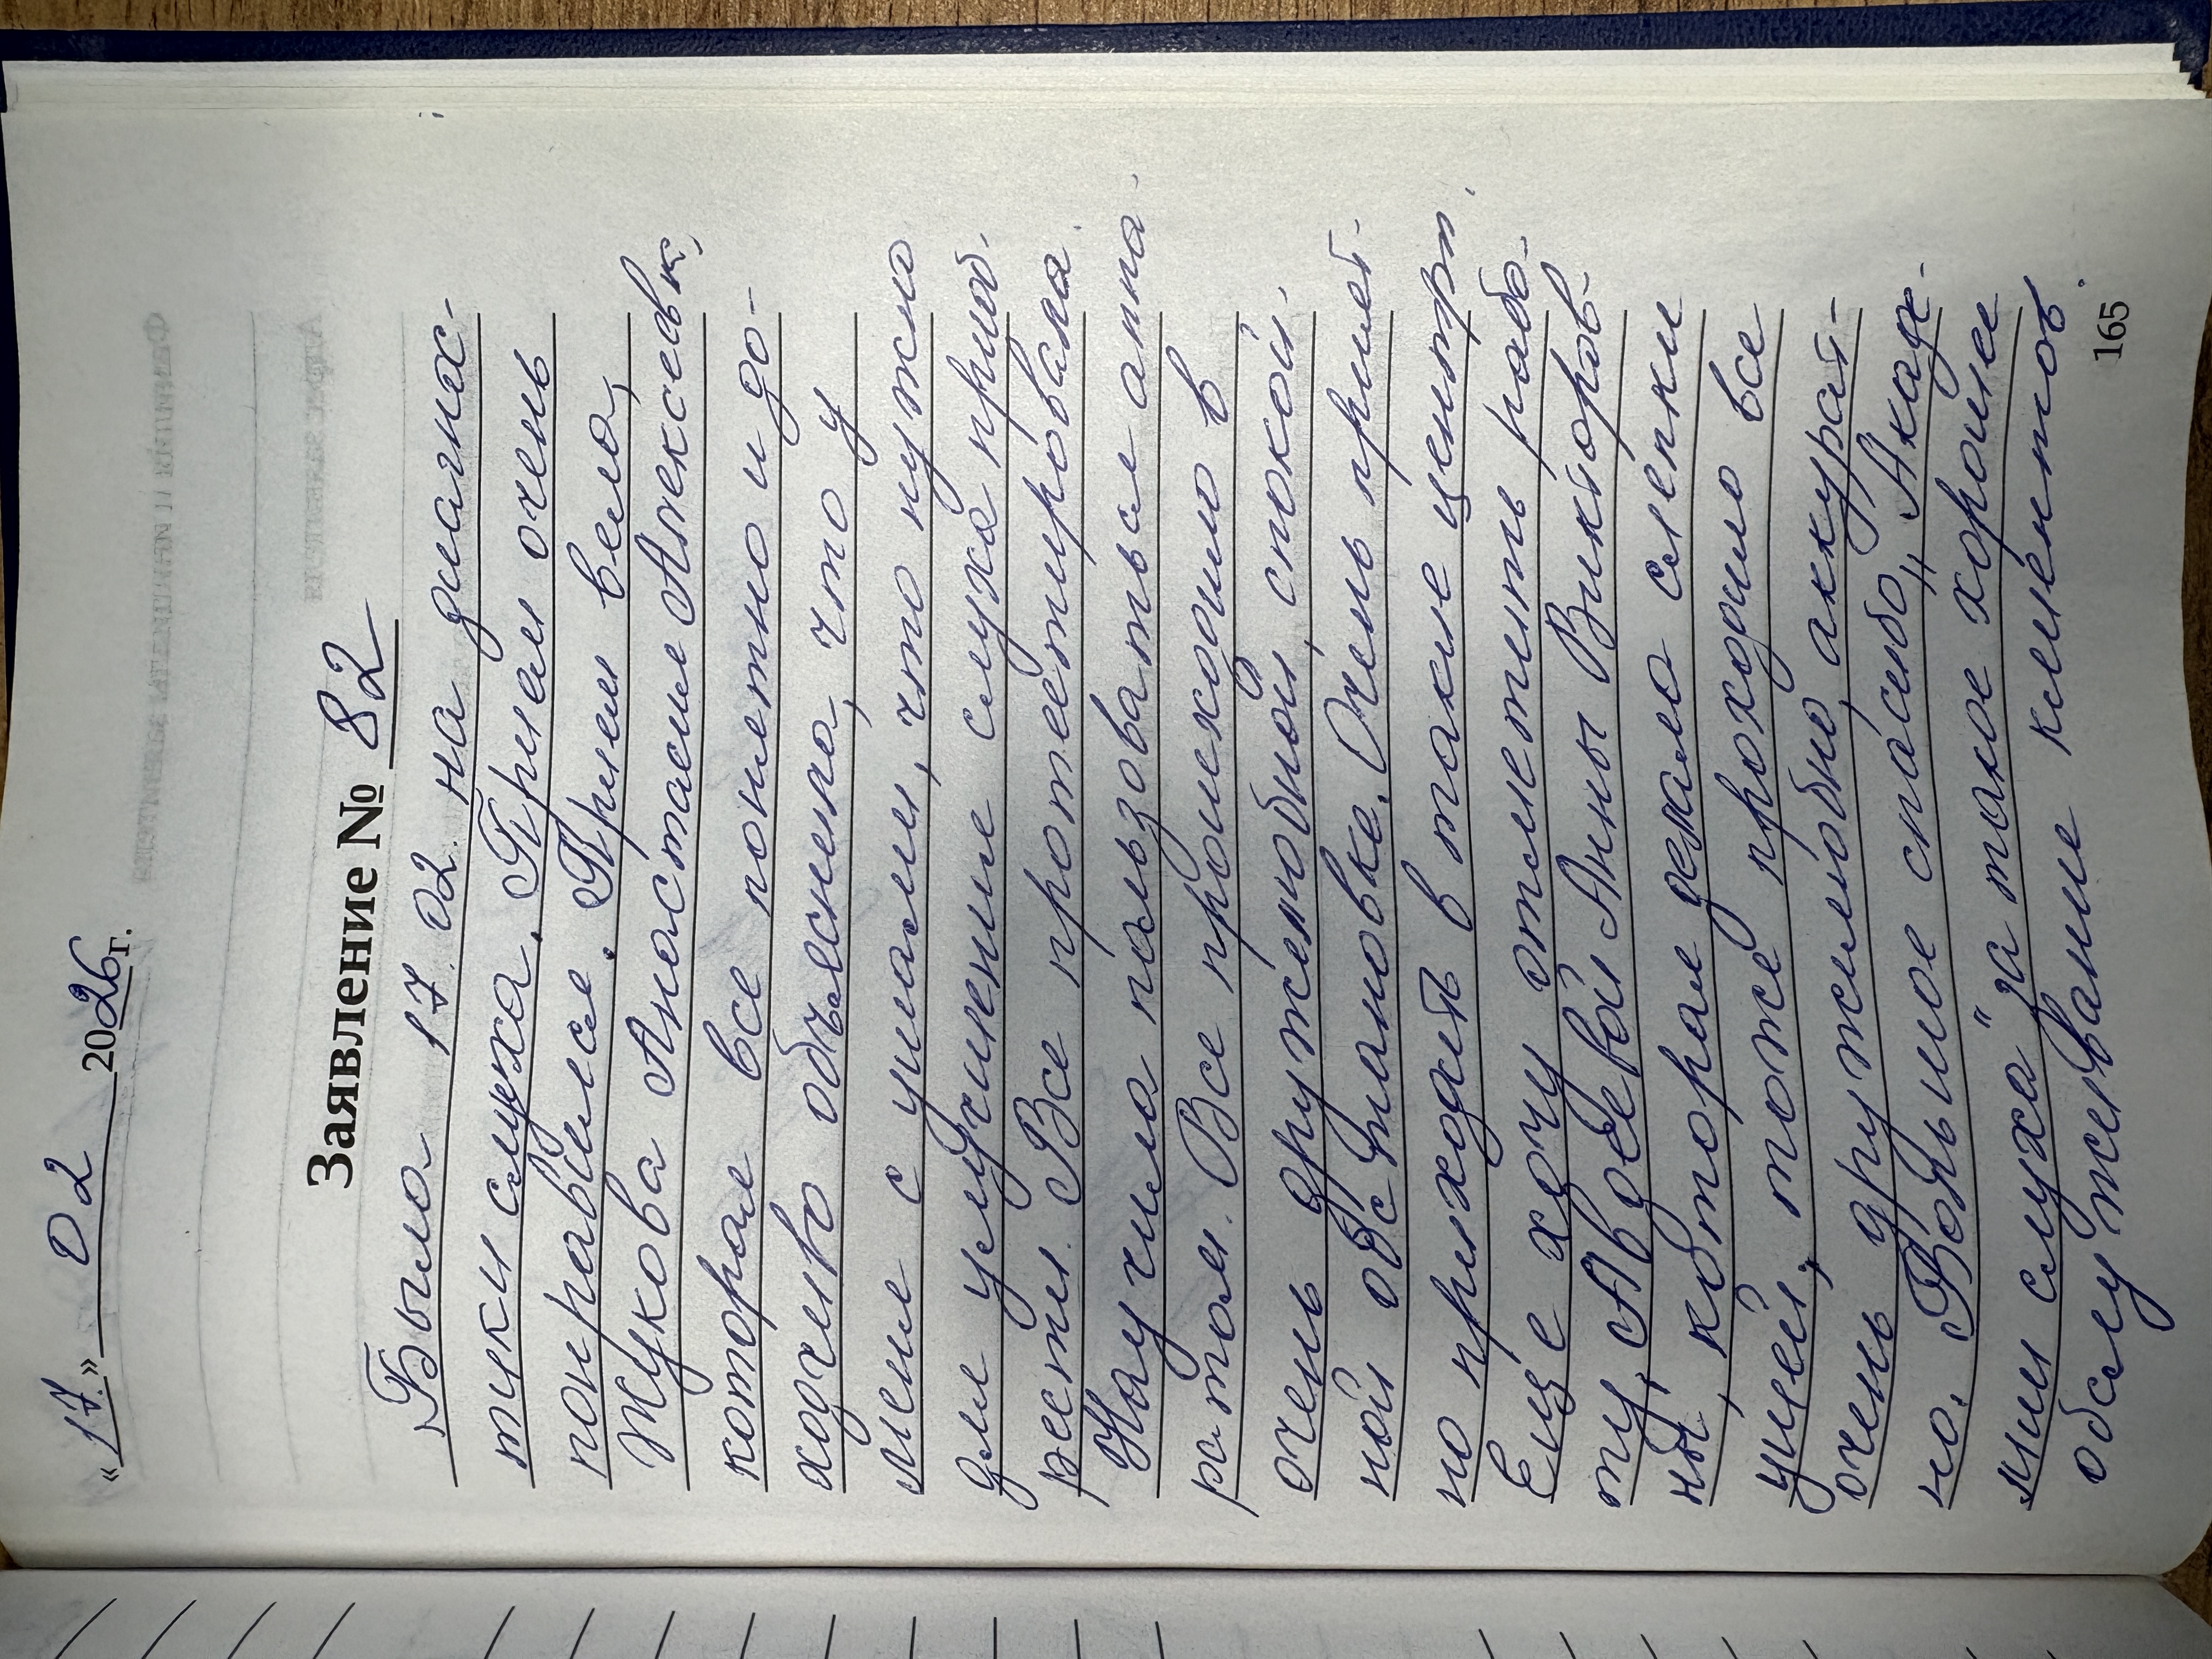 «17» 02 2026 г.
Заявление № 82
Была 17.02. на диагнос-
тики слуха. Прием очень
понравился. Прием вела,
Жукова Анастасия Алексеевн,
которая все понятно и до-
ходчиво объяснила, что у
меня с ушами, что нужно
для улучшение слуха приоб-
рести. Все протестировала.
Научила пользоваться аппа-
ратом. Все происходило в
очень дружелюбной, спокой-
ной обстановке. Очень прият-
но приходить в такие центры.
Еще хочу отметить рабо-
ту, Авдеевой Анны Викторов-
ны, которая делала слепки
ушей, тоже проходило все
очень дружелюбно, аккурат-
но. Большое спасибо „Акаде-
мии слуха" за такое хорошее
обслуживание клиентов.
165